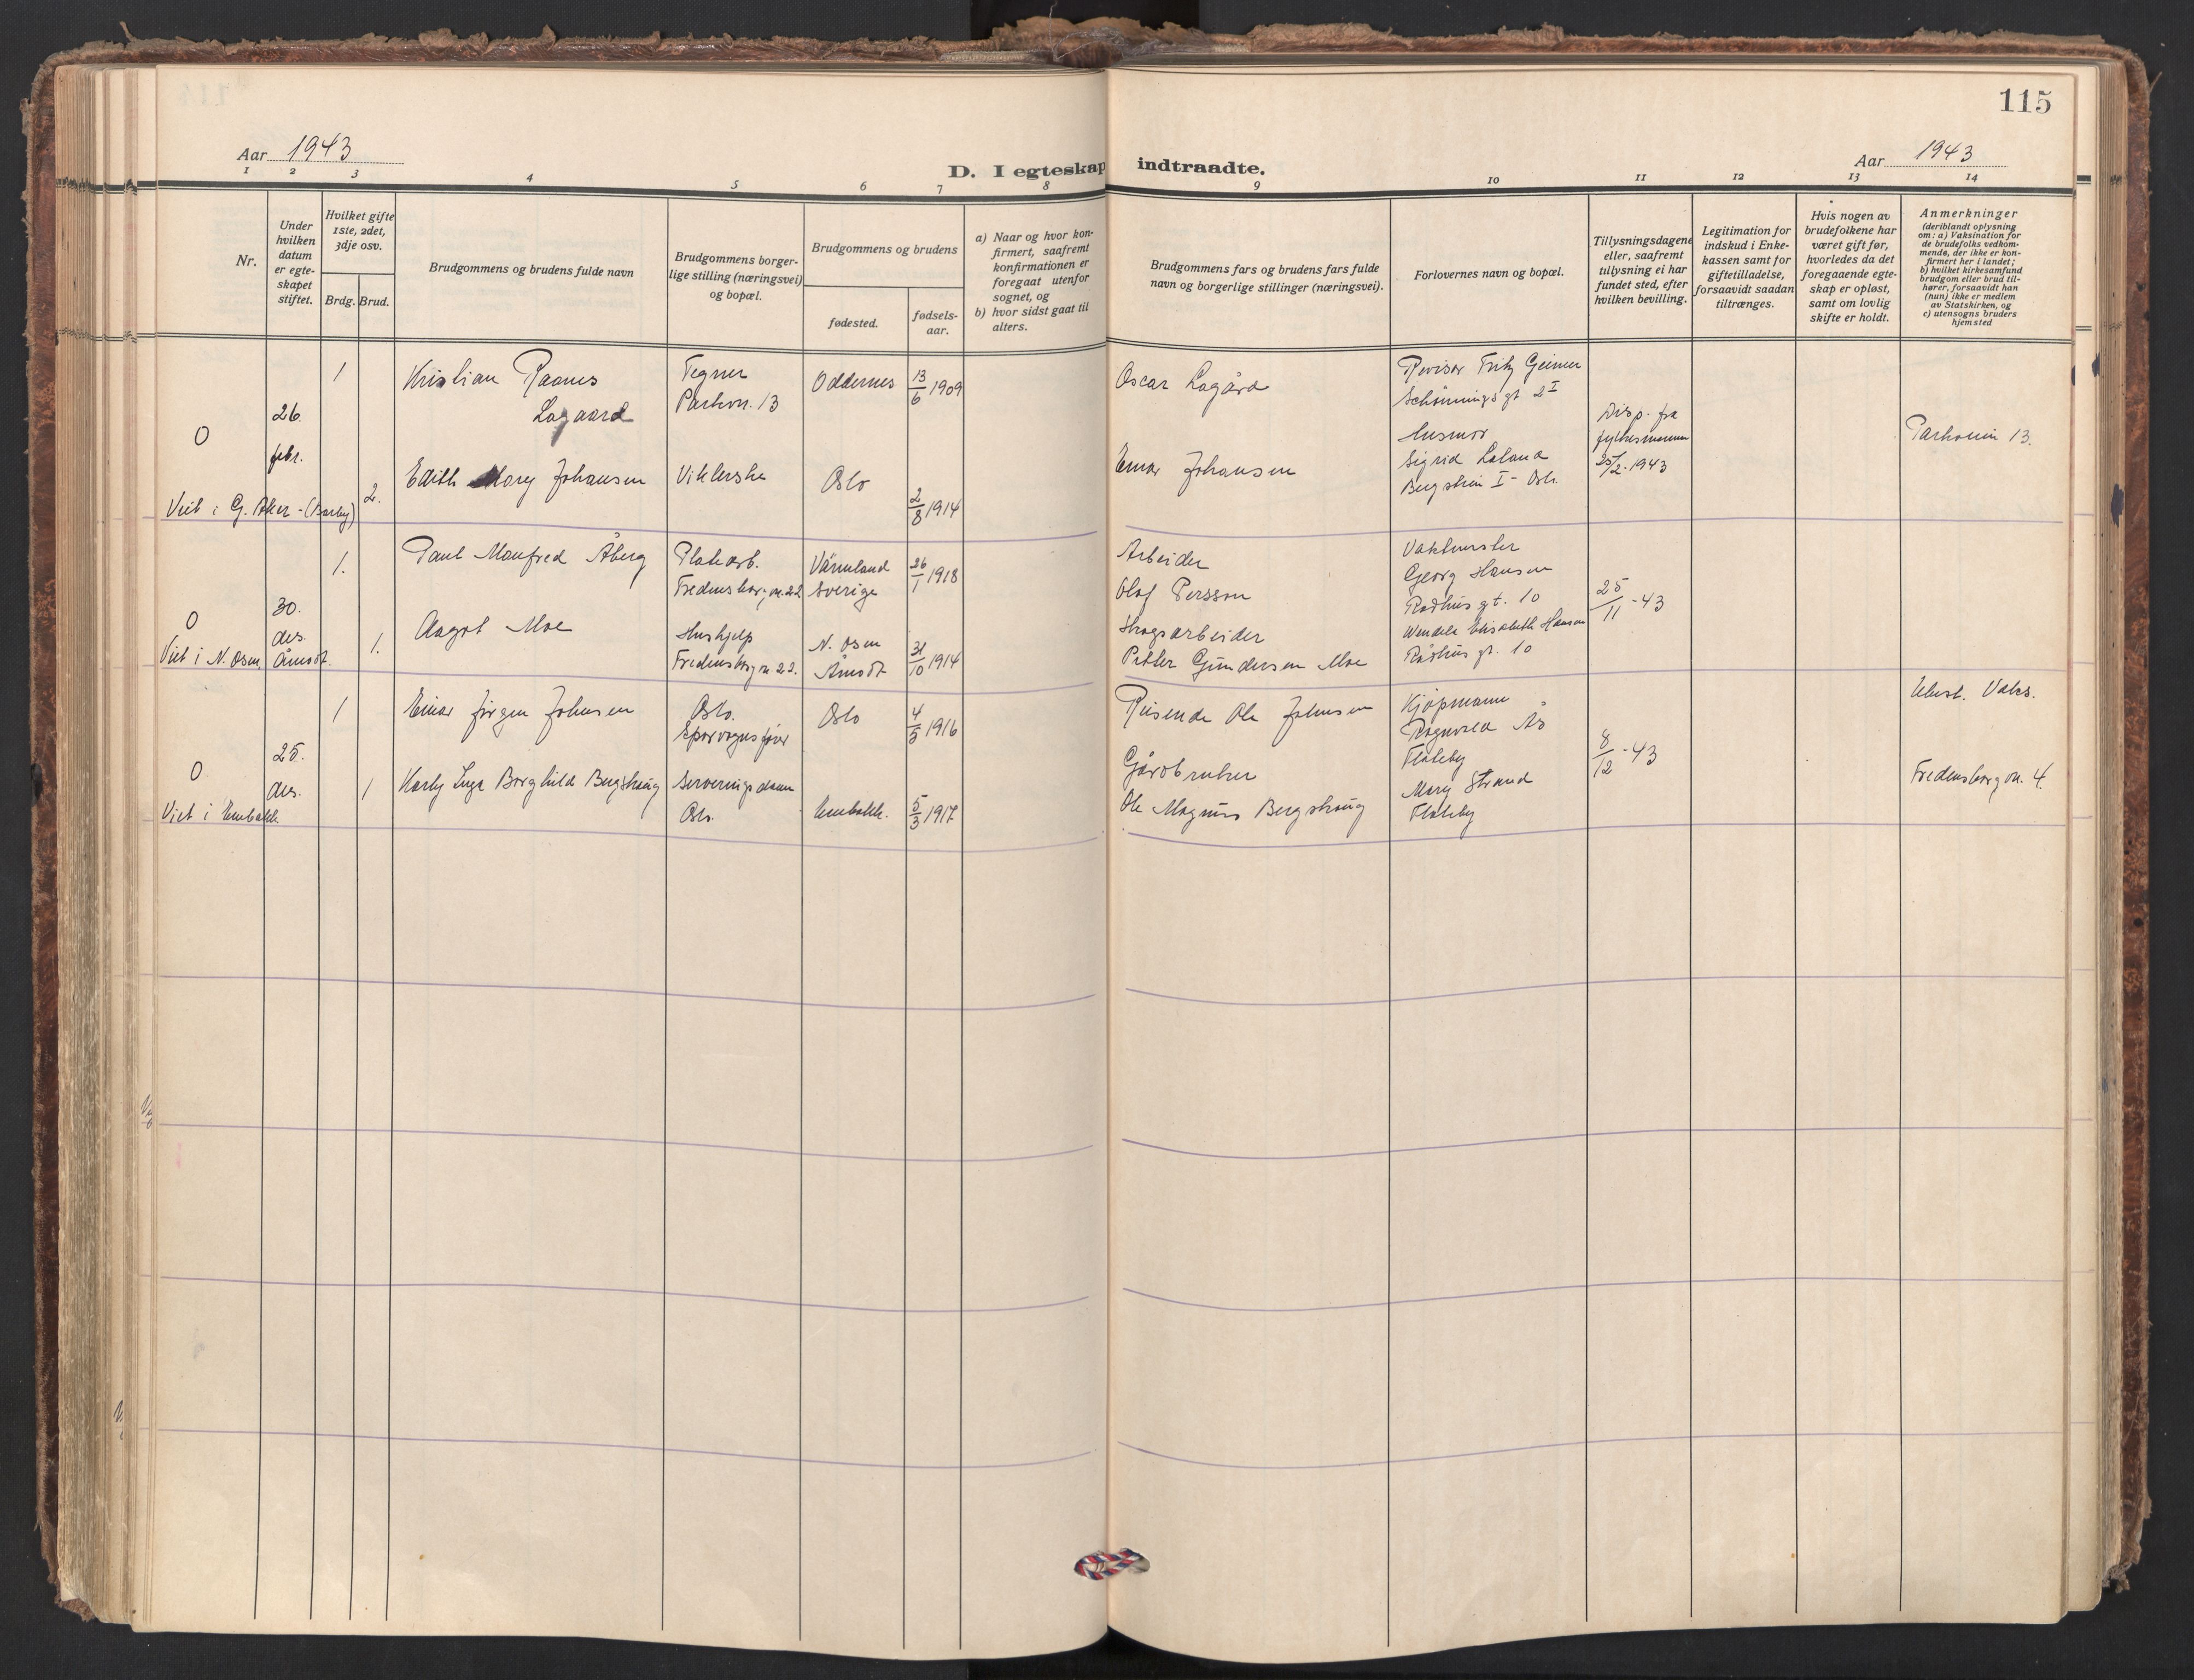 115
Aar 1943
D. I egteskap indtraadte.
Aar 1943
1 2 3 4 5 6 7 8 9 10 11 12 13 14
Nr.
Under hvilken datum er egte-skapet stiftet.
Hvilket gifte 1ste, 2det, 3dje osv.
Brdg. Brud.
Brudgommens og brudens fulde navn
Brudgommens borger-
lige stilling (næringsvei)
og bopæl.
Brudgommens og brudens
fødested.
fødsels-
aar.
a) Naar og hvor kon-
firmert, saafremt
konfirmationen er
foregaat utenfor
sognet, og
b) hvor sidst gaat til
alters.
Brudgommens fars og brudens fars fulde
navn og borgerlige stillinger (næringsvei).
Forlovernes navn og bopæl.
Tillysningsdagene
eller, saafremt
tillysning ei har
fundet sted, efter
hvilken bevilling.
Legitimation for
indskud i Enke-
kassen samt for
giftetilladelse,
forsaavidt saadan
tiltrænges.
Hvis nogen av
brudefolkene har
været gift før,
hvorledes da det
foregaaende egte-
skap er opløst,
samt om lovlig
skifte er holdt.
Anmerkninger
(deriblandt oplysning
om: a) Vaksination for
de brudefolks vedkom-
mende, der ikke er kon-
firmert her i landet;
b) hvilket kirkesamfund
brudgom eller brud til-
hører, forsaavidt han
(hun) ikke er medlem
av Statskirken, og
c) utensogns bruders
hjemsted
0
26.
febr.
1
Kristian Raanes
Lagaard
Tegner
Parkvn. 13
Oddernes
13/6 1909
Oscar Lagård
Revisor Fritz Geiner
Schønningsgt 2 I
Disp. fra
fylkesmannen
25/2-1943
Parkveien 13.
2.
Edith Mary Johansen
Oslo
2/8 1914
Einar Johansen
Husmor
Sigrid Loland
I - Oslo
Viet i G. Aker -
0
30.
des.
1.
Paul Manfred Åberg
Platearb.
Fredensborgvn. 22
Värmland
Sverige
26/1 1918
Arbeider
Olof Persson
Georg Hansen
Rådhusgt. 10
25/11 -43
1.
Aagot Moe
Hushjelp
Fredensborgvn 22.
N. Osen
Åmodt
31/10 1914
Skogsarbeider
Petter Gundersen Moe
Wendela Elisabeth Hansen
Rådhusgt. 10
Viet i N. Osen, Åmodt.
0
25.
des.
1
Einar Jørgen Johnsen
Oslo.
Sporvognsfører
Oslo
4/5 1916
Reisende Ole Johnsen
Kjøpmann
Ragnvald Ås
Flateby
8/12 -43
Vaks.
1
Karly Inga Borghild Bergskaug
Serveringsdame
Oslo.
Enebakk.
5/3 1917
Gårdbruker
Ole Magnus Bergskaug
Mary Strand
Flateby
Fredensborgvn. 4.
Viet i Enebakk